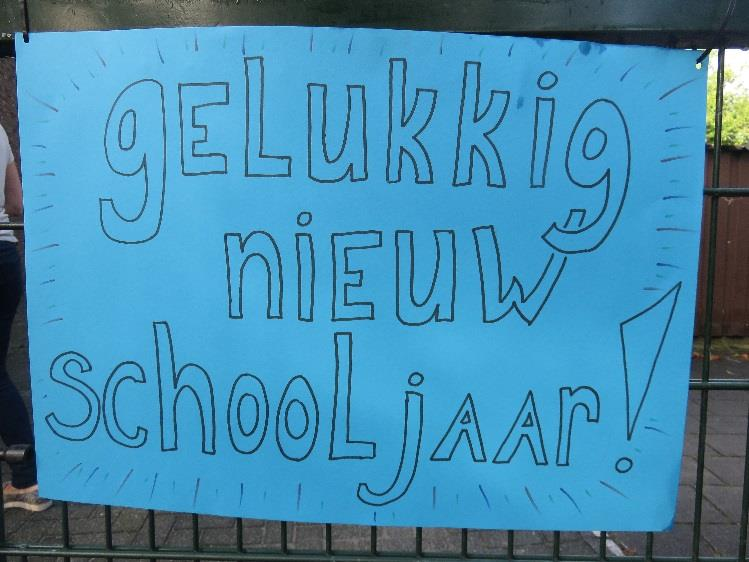 gELukkig
niEuw
schooLjAAr!